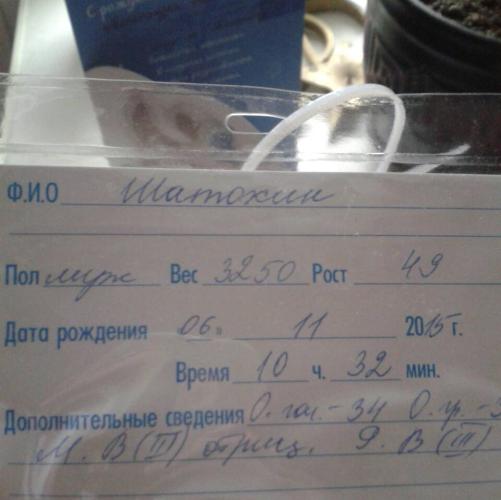 С рожде
Ф.И.О Шатохин
Пол муж Вес 3250 Рост 49
Дата рождения 06 " 11 2015 г.
Время 10 ч. 32 мин.
Дополнительные сведения О. гол.-34 О. гр.-3
М. В (III) отриц. Р. В (III)